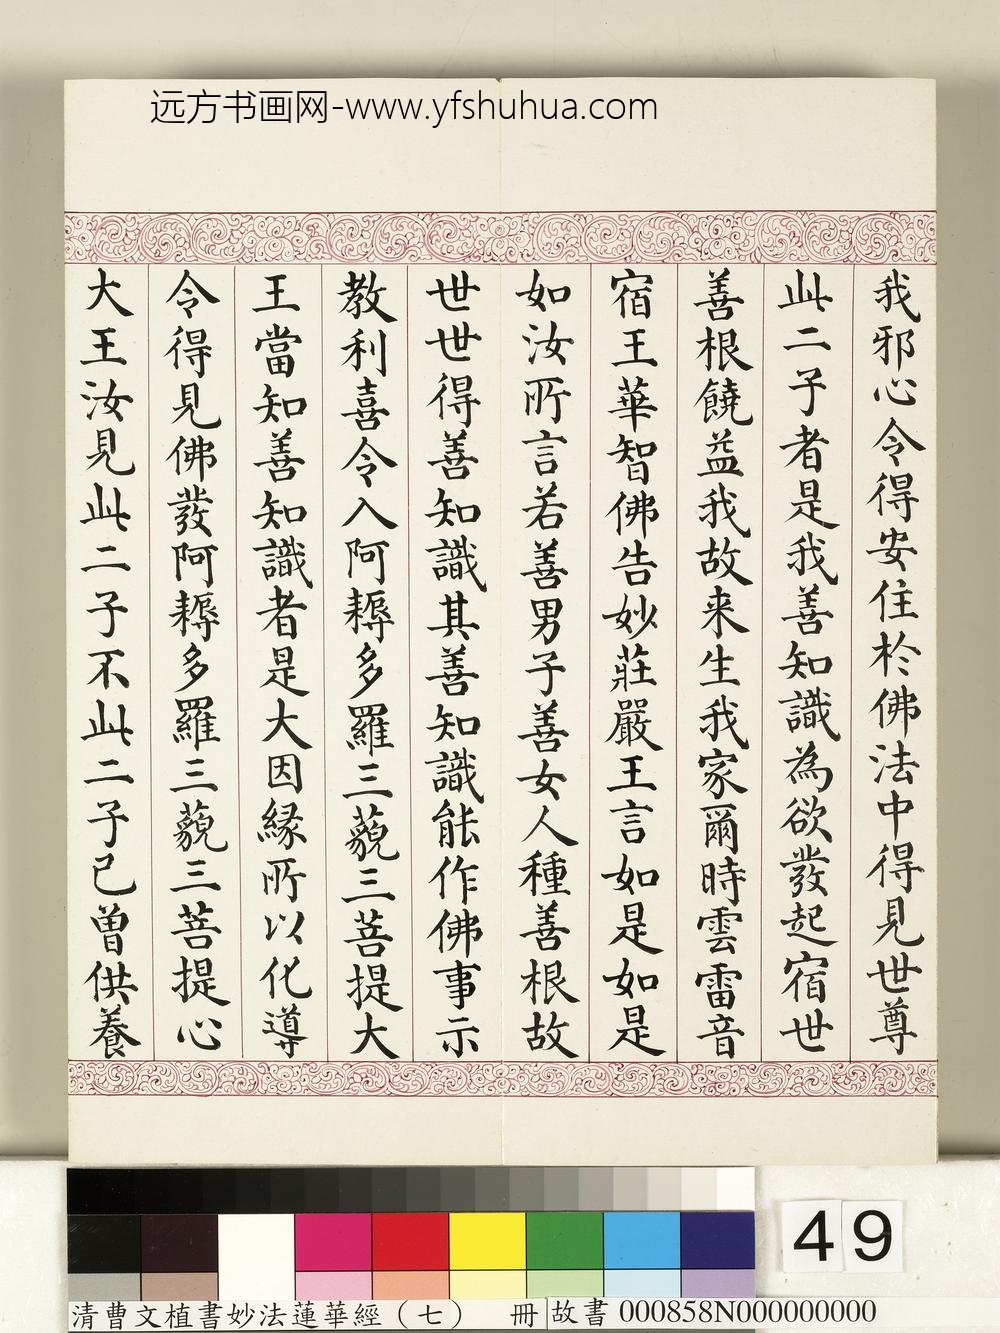 远方书画网-www.yfshuhua.com
我邪心令得安住於佛法中得見世尊
此二子者是我善知識為欲發起宿世
善根饒益我故来生我家爾時雲雷音
宿王華智佛告妙莊嚴王言如是如是
如汝所言若善男子善女人種善根故
世世得善知識其善知識能作佛事示
教利喜令入阿耨多羅三藐三菩提大
王當知善知識者是大因緣所以化導
令得見佛發阿耨多羅三藐三菩提心
大王汝見此二子不此二子已曾供養
49
清曹文植書妙法蓮華經（七） 冊 故書 000858N000000000